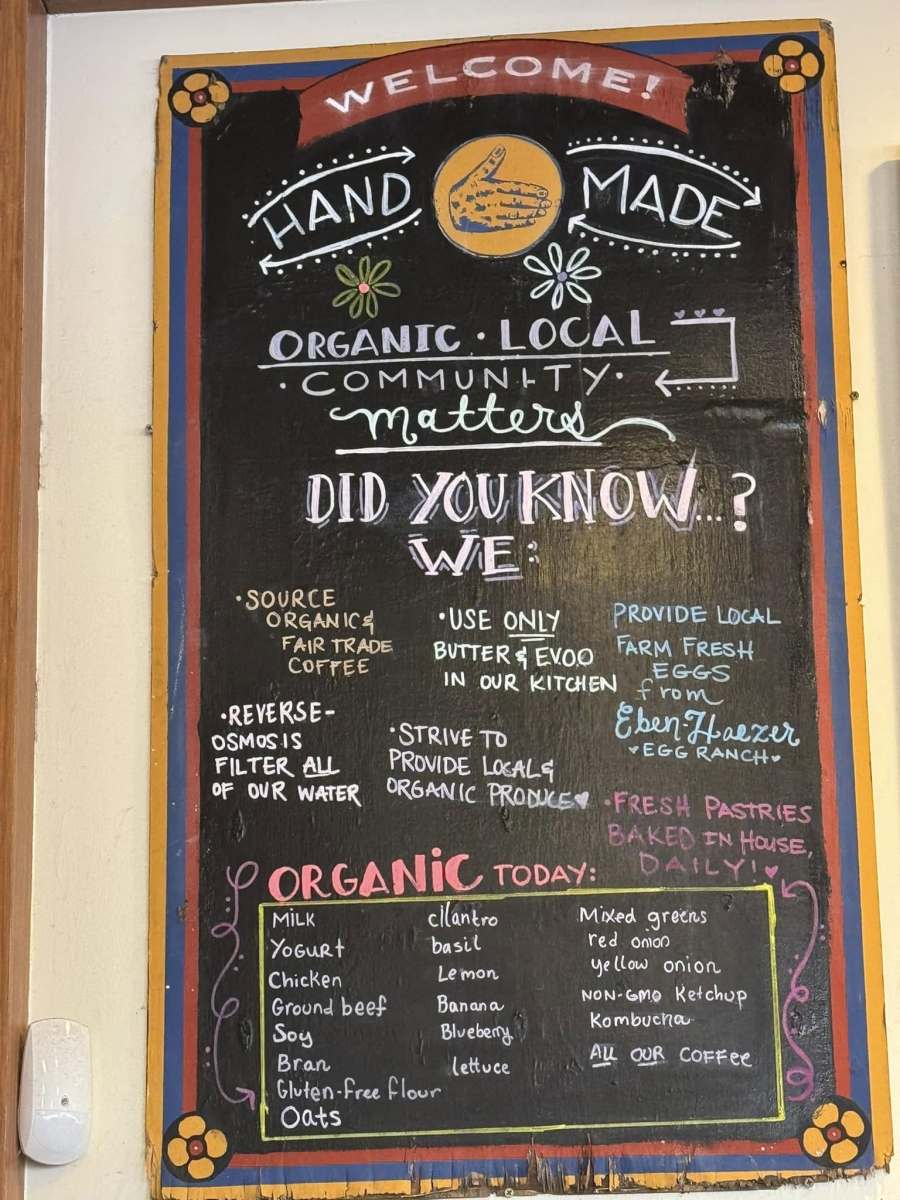 WELCOME!
HAND MADE
ORGANIC · LOCAL
· COMMUNITY ·
matters
DID YOU KNOW...?
WE:
· SOURCE
ORGANIC &
FAIR TRADE
COFFEE
· USE ONLY
BUTTER & EVOO
IN OUR KITCHEN
PROVIDE LOCAL
FARM FRESH
EGGS
from
Eben-Haezer
EGG RANCH
· REVERSE-
OSMOSIS
FILTER ALL
OF OUR WATER
· STRIVE TO
PROVIDE LOCAL &
ORGANIC PRODUCE
· FRESH PASTRIES
BAKED IN HOUSE,
DAILY!
ORGANIC TODAY:
MILK
YOGURT
Chicken
Ground beef
Soy
Bran
Gluten-free flour
Oats
cilantro
basil
Lemon
Banana
Blueberry
lettuce
Mixed greens
red onion
yellow onion
NON-GMO Ketchup
Kombucha
ALL OUR COFFEE